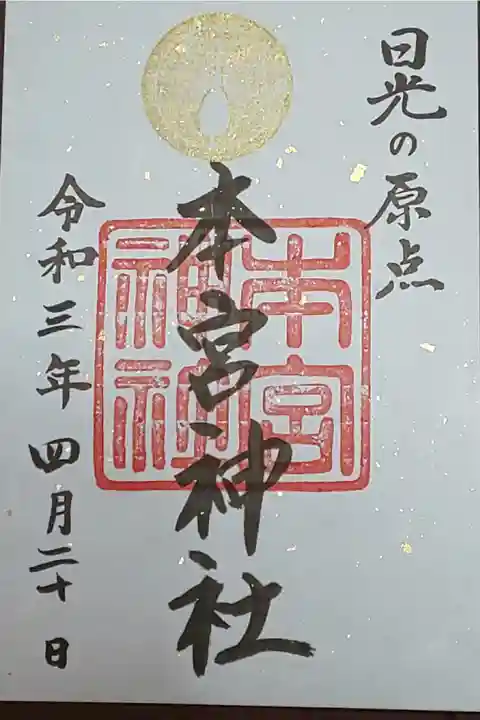 日光の原点
本宮神社
本宮神社
令和三年四月二十日